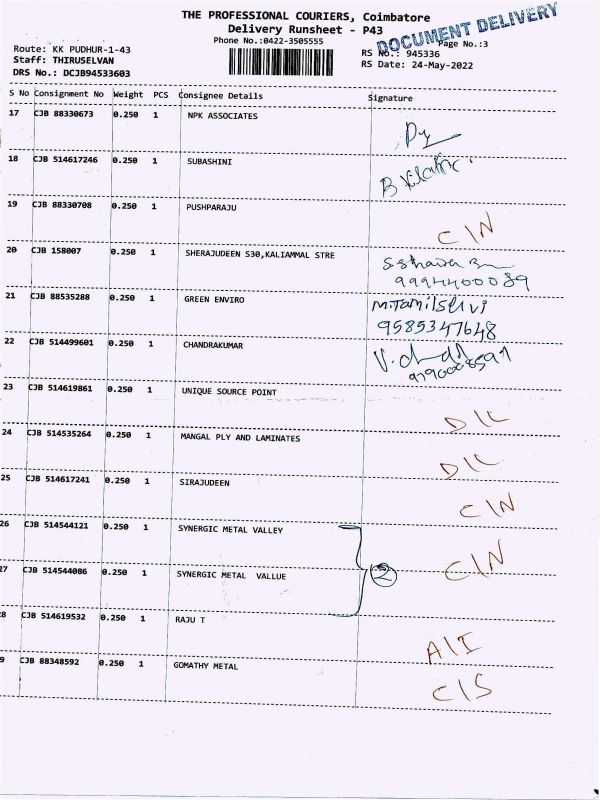 THE PROFESSIONAL COURIERS, Coimbatore
Delivery Runsheet - P43
DOCUMENT DELIVERY
Phone No.:0422-3505555
Page No.:3
Route: KK PUDHUR-1-43
RS No.: 945336
Staff: THIRUSELVAN
RS Date: 24-May-2022
DRS No.: DCJB94533603
S No Consignment No Weight PCS Consignee Details Signature
17 CJB 88330673 0.250 1 NPK ASSOCIATES
18 CJB 514617246 0.250 1 SUBASHINI
19 CJB 88330708 0.250 1 PUSHPARAJU C/N
20 CJB 158007 0.250 1 SHERAJUDEEN S30,KALIAMMAL STRE
9994400089
21 CJB 88535288 0.250 1 GREEN ENVIRO M.Tamilselvi
9585347648
22 CJB 514499601 0.250 1 CHANDRAKUMAR
9790008591
23 CJB 514619861 0.250 1 UNIQUE SOURCE POINT D/L
24 CJB 514535264 0.250 1 MANGAL PLY AND LAMINATES D/L
25 CJB 514617241 0.250 1 SIRAJUDEEN C/N
26 CJB 514544121 0.250 1 SYNERGIC METAL VALLEY C/N
27 CJB 514544086 0.250 1 SYNERGIC METAL VALLUE 2
28 CJB 514619532 0.250 1 RAJU T A/I
9 CJB 88348592 0.250 1 GOMATHY METAL C/S